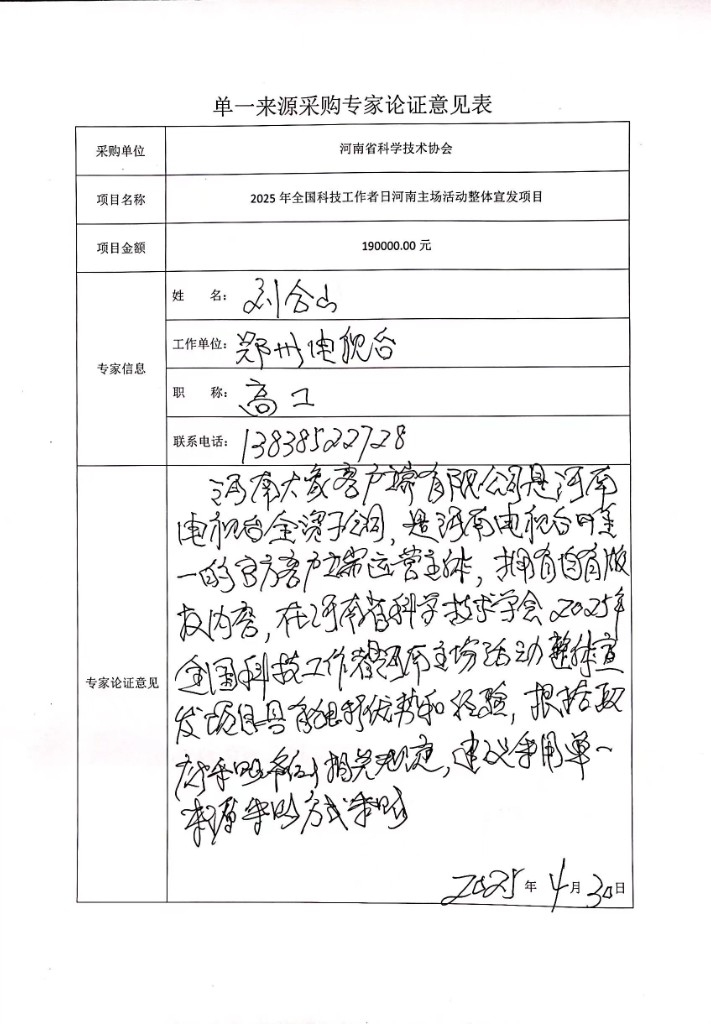 单一来源采购专家论证意见表
采购单位
河南省科学技术协会
项目名称
2025 年全国科技工作者日河南主场活动整体宣发项目
项目金额
190000.00 元
专家信息
姓 名: 刘合山
工作单位: 郑州电视台
职 称: 高工
联系电话: 13838522728
专家论证意见
河南大象客户端有限公司是河南
电视台全资子公司，是河南电视台唯
一的官方客户端运营主体，拥有自有版
权内容，在河南省科学技术学会2025年
全国科技工作者河南主场活动整体宣
发项目具有独特优势和经验，根据政
府采购条例相关规定，建议采用单一
来源采购方式采购
2025 年 4 月 30 日